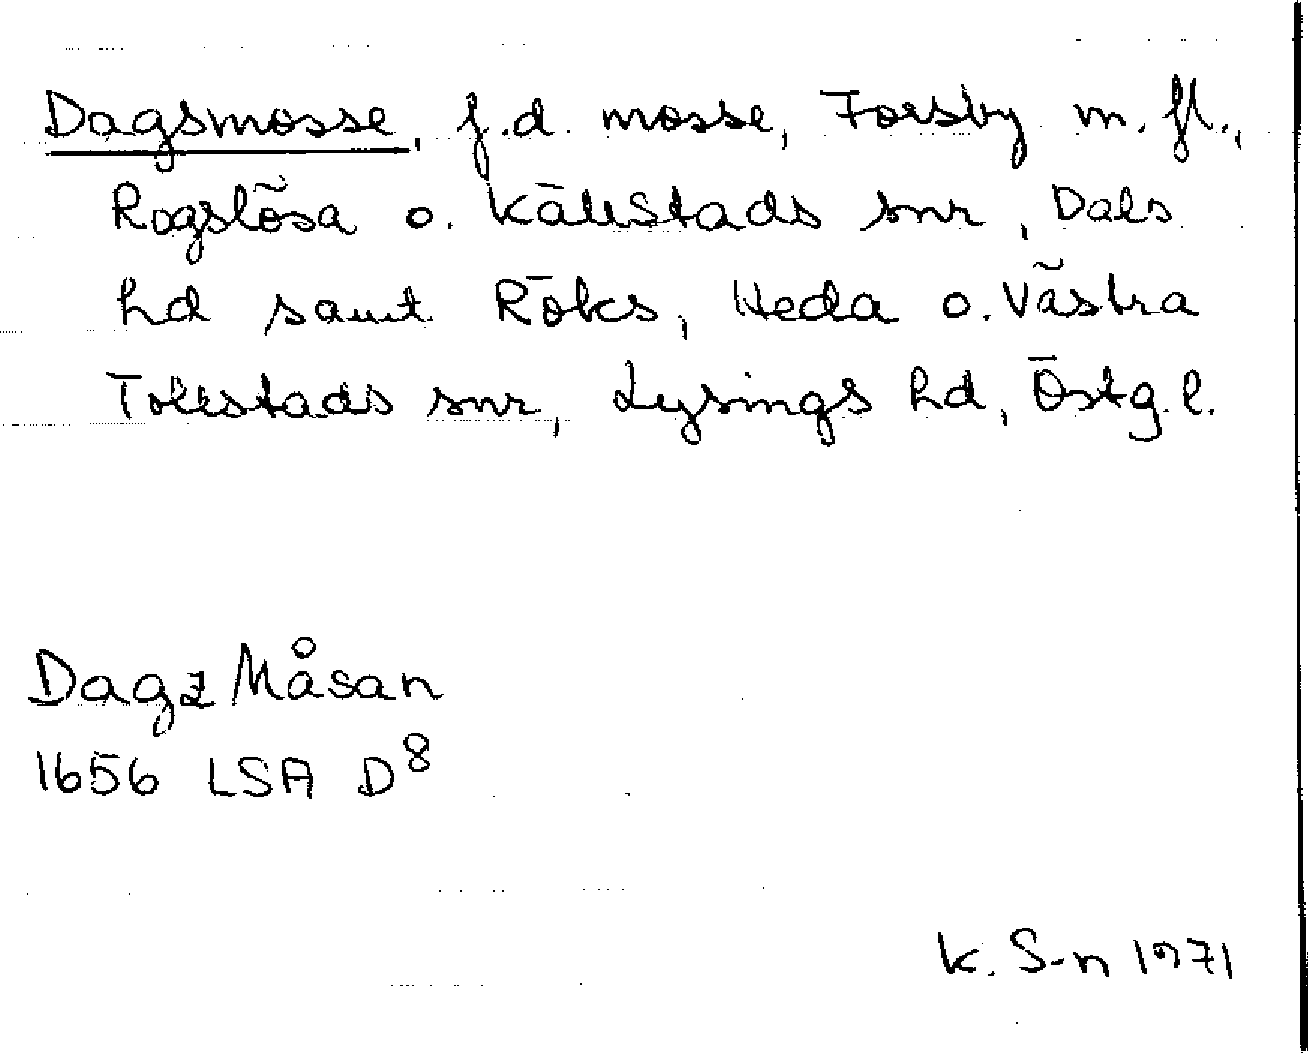 Dagsmosse, f.d. mosse, Forsby m. fl.,
Rogslösa o. Källstads snr, Dals
hd samt Röks, Heda o. Västra
Tollstads snr, Lysings hd, Östg. l.
Dagz Måsan
1656 LSA D⁸
K. S-n 1971